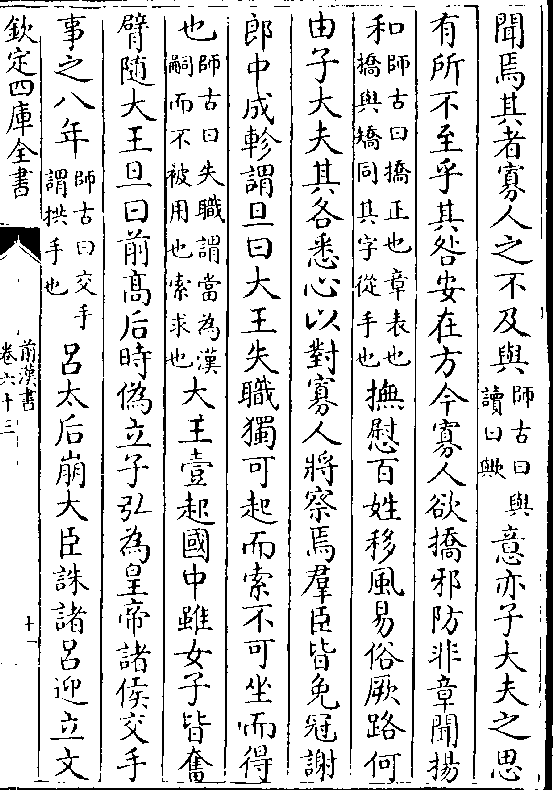 聞焉其者寡人之不及與師古曰與讀曰歟意亦子大夫之思
有所不至乎其咎安在方今寡人欲撟邪防非章聞揚
和師古曰撟正也章表也撟與矯同其字從手也撫慰百姓移風易俗厥路何
由子大夫其各悉心以對寡人將察焉羣臣皆免冠謝
郎中成軫謂旦曰大王失職獨可起而索不可坐而得
也師古曰失職謂當為漢嗣而不被用也索求也大王壹起國中雖女子皆奮
臂隨大王旦曰前高后時偽立子弘為皇帝諸侯交手
事之八年師古曰交手謂拱手也呂太后崩大臣誅諸呂迎立文
欽定四庫全書
前漢書
卷六十三
十一